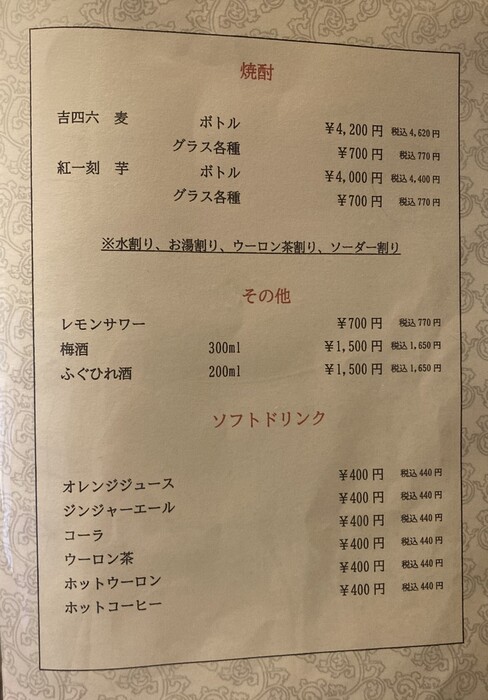 焼酎
吉四六 麦 ボトル ￥4,200 円 税込 4,620 円
グラス各種 ￥700 円 税込 770 円
紅一刻 芋 ボトル ￥4,000 円 税込 4,400 円
グラス各種 ￥700 円 税込 770 円
※水割り、お湯割り、ウーロン茶割り、ソーダー割り
その他
レモンサワー ￥700 円 税込 770 円
梅酒 300ml ￥1,500 円 税込 1,650 円
ふぐひれ酒 200ml ￥1,500 円 税込 1,650 円
ソフトドリンク
オレンジジュース ￥400 円 税込 440 円
ジンジャーエール ￥400 円 税込 440 円
コーラ ￥400 円 税込 440 円
ウーロン茶 ￥400 円 税込 440 円
ホットウーロン ￥400 円 税込 440 円
ホットコーヒー ￥400 円 税込 440 円